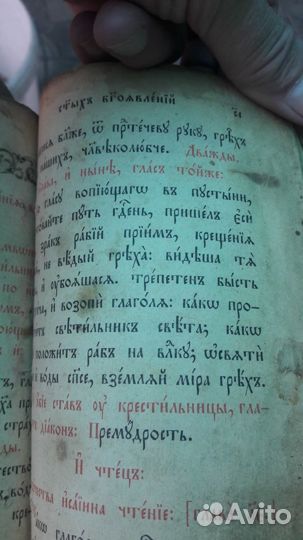 ст҃ыхъ бг҃оявленїй
бл҃же, ѿ прⷣте́чевꙋ рꙋкꙋ̀, грѣ́хъ
на́шихъ, чл҃вѣколю́бче. Два́жды.
и҆ ны́нѣ, гла́съ то́йже:
гла́сꙋ вопїю́щагѡ въ пꙋсты́ни,
пꙋ́ть гдⷭ҇ень, прише́лъ є҆сѝ
зра́къ ра́бїй прїи́мъ, креще́нїѧ
не вѣ́дый грѣха̀: ви́дѣша тѧ̀
и҆ ᲂу҆боѧ́шасѧ. тре́петенъ бы́сть
и҆ возопѝ глаго́лѧ: ка́кѡ про-
свѣти́льникъ свѣ́та; ка́кѡ
положи́тъ ра́бъ на влⷣкꙋ; ѡ҆свѧтѝ
и҆ во́ды сп҃се, взе́млѧй мі́ра грѣ́хъ.
ста́въ ᲂу҆ крести́льницы, гла-
дїа́конъ: Премꙋ́дрость.
И҆ чте́цъ:
и҆са́їина чте́нїе:
Avito